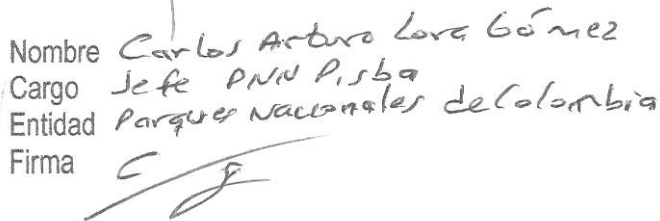 Nombre Carlos Arturo Lora Gómez
Cargo Jefe PNN Pisba
Entidad Parques Nacionales de Colombia
Firma